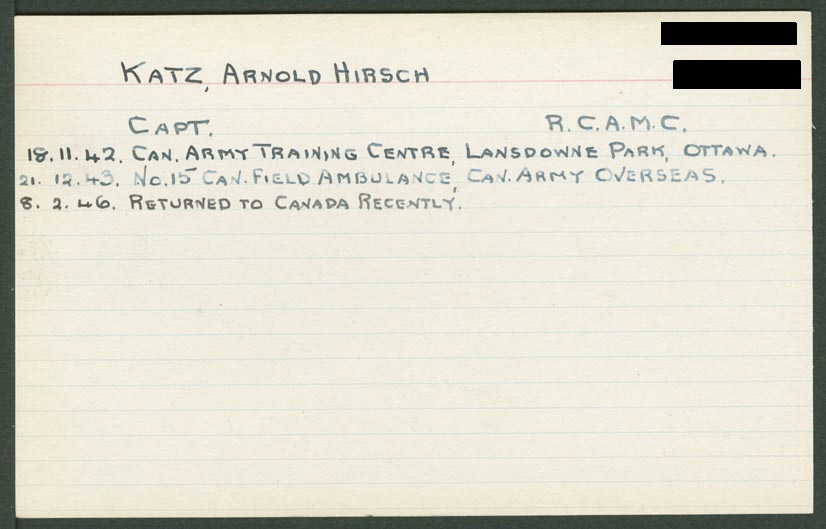 KATZ, ARNOLD HIRSCH
CAPT. R.C.A.M.C.
18.11.42. CAN. ARMY TRAINING CENTRE, LANSDOWNE PARK, OTTAWA.
21. 12.43. NO.15 CAN. FIELD AMBULANCE, CAN. ARMY OVERSEAS.
8. 2.46. RETURNED TO CANADA RECENTLY.